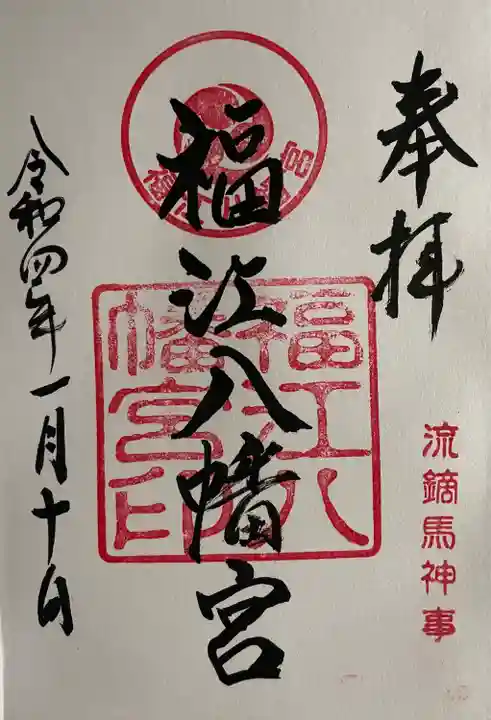 奉拝
流鏑馬神事
福江八幡宮
福江八
幡宮印
令和四年一月十日